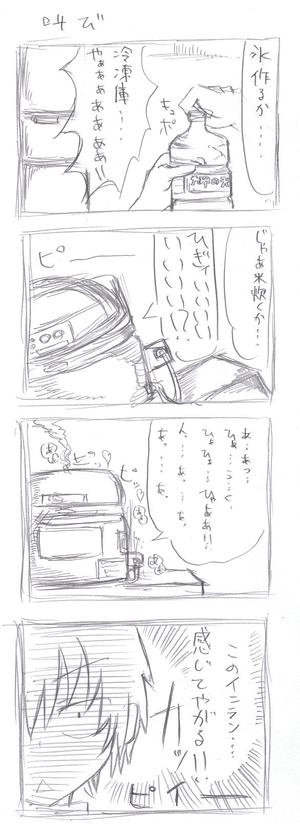 叫び
氷作るか…‥
キュポ
冷凍庫…
やぁぁぁ
ぁぁぁぁ!!
じゃあ米炊くか…‥
ひぎィいいい
いいいい!?
ピー
あ…あっ…
ひゃ…う…く…
ひょひょ…ひゃああ!!
人…あ。…な。
…あ。…あ。
ピッ
ピッ
このイニラン…‥
感いてやがる!!
ガッ
ピィー